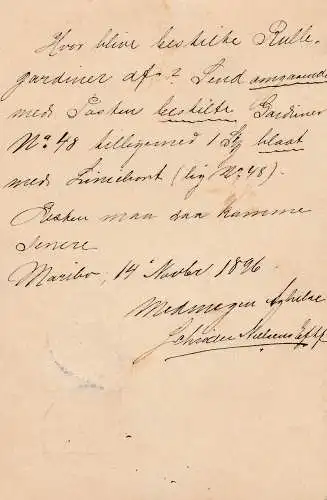 Hvor blive bestilte Rulle-
gardiner af? Send omgaaende
med Posten bestilte Gardiner
No 48 tilligemed 1 St blaat
med (lig No 48).
Resten maa saa komme
senere
Maribo, 14 Novbr 1896
Med megen Agtelse
Schrøder Nielsens Eftf